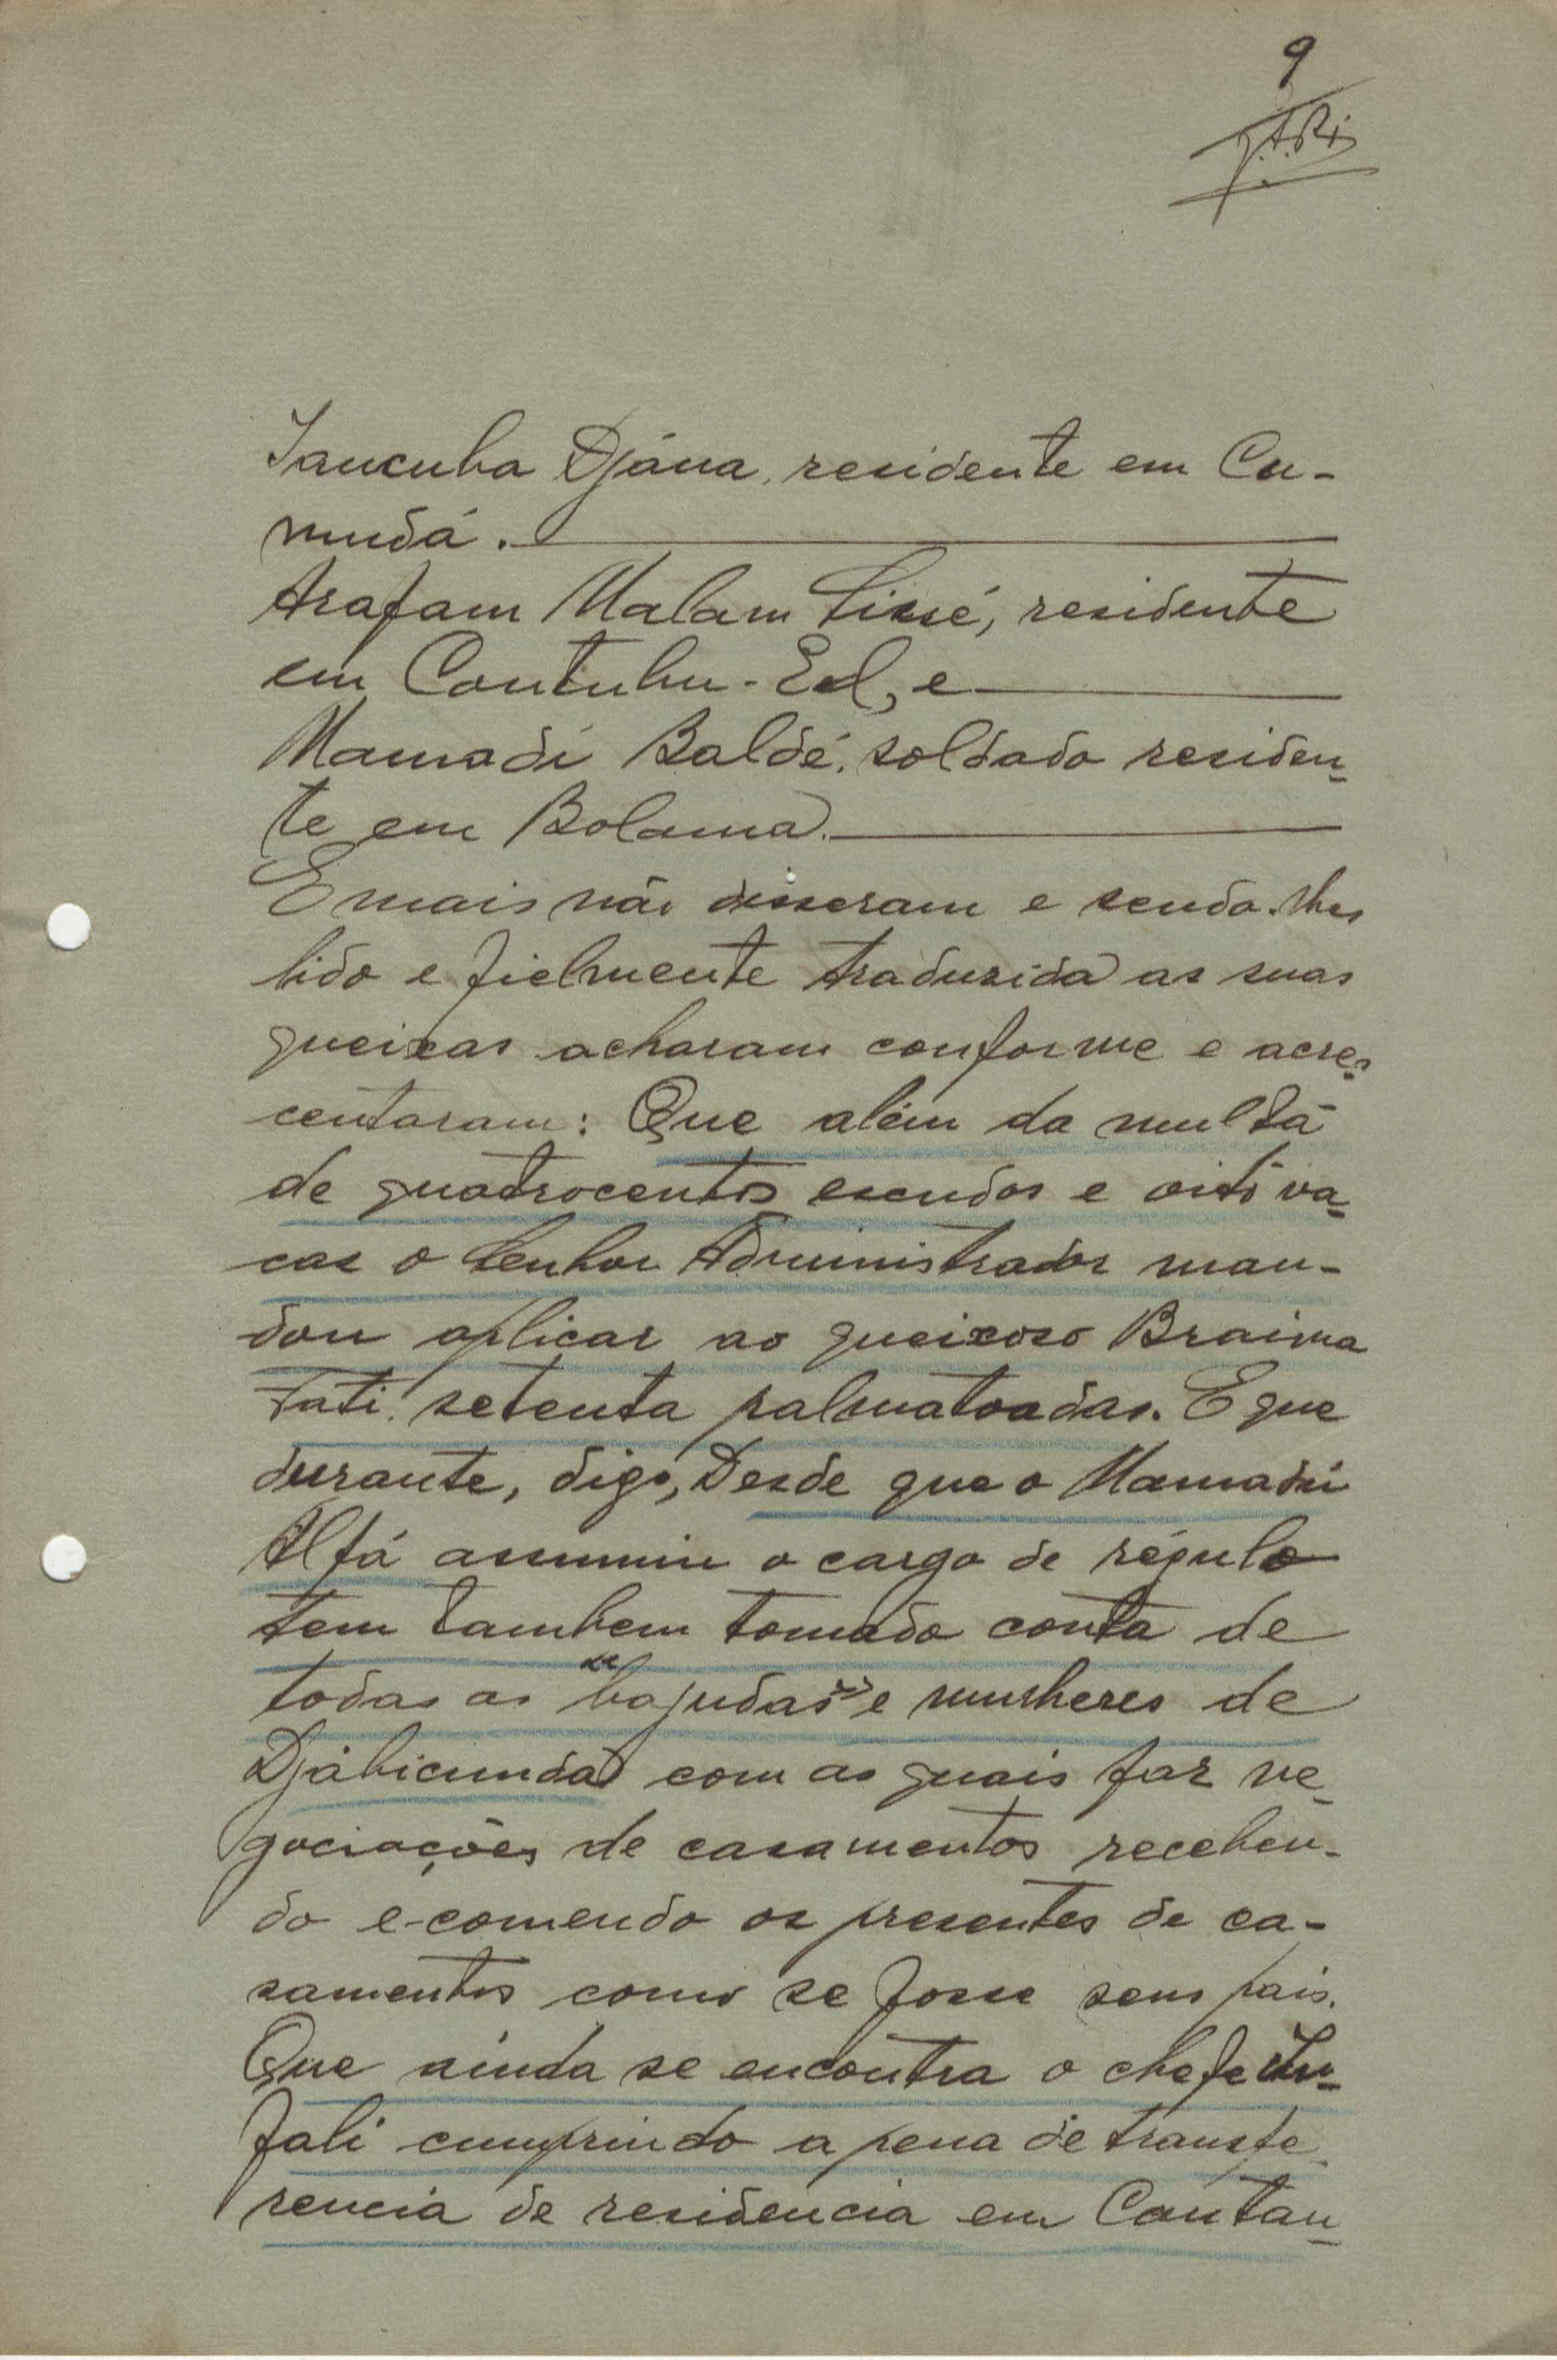 9
Iancuba Djána, residente em Cu-
mudá.
Arafam Malam Sissé, residente
em Contubu-El, e
Mamadi Baldé, soldado residen-
te em Bolama.
E mais não disseram e sendo-lhes
lido e fielmente traduzida as suas
queixas acharam conforme e acres-
centaram: Que além da multa
de quatrocentos escudos e oito va-
cas o Senhor Administrador man-
dou aplicar ao queixoso Braima
Fati, setenta palmatoadas. E que
durante, digo, Desde que o Mamadú
Alfá assumiu o cargo de régulo
tem tambem tomado conta de
todas as "bajudas" e mulheres de
Djábicunda com as quais faz ne-
gociações de casamentos receben-
do e comendo os presentes de ca-
samentos como se fosse seus pais.
Que ainda se encontra o chefe
fali cumprindo a pena de transfe-
rencia de residencia em Contan-